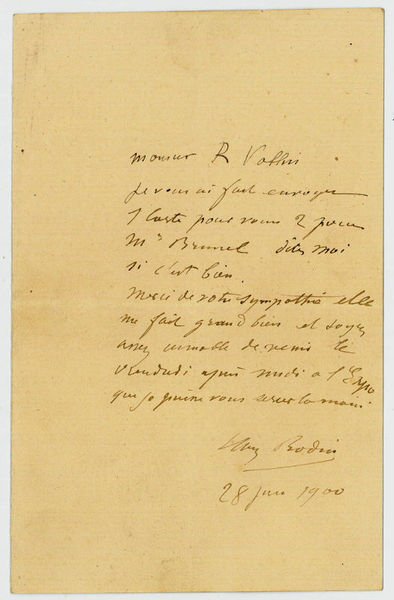 Monsieur R Vallin
Je vous ai fait envoyer
1 Carte pour vous 2 pour
Mr Brunel dites moi
si c'est bien.
Merci de votre sympathie elle
me fait grand bien et soyez
assez aimable de venir le
vendredi après midi à l'Expo
que je puisse vous serrer la main.
Aug Rodin
28 juin 1900